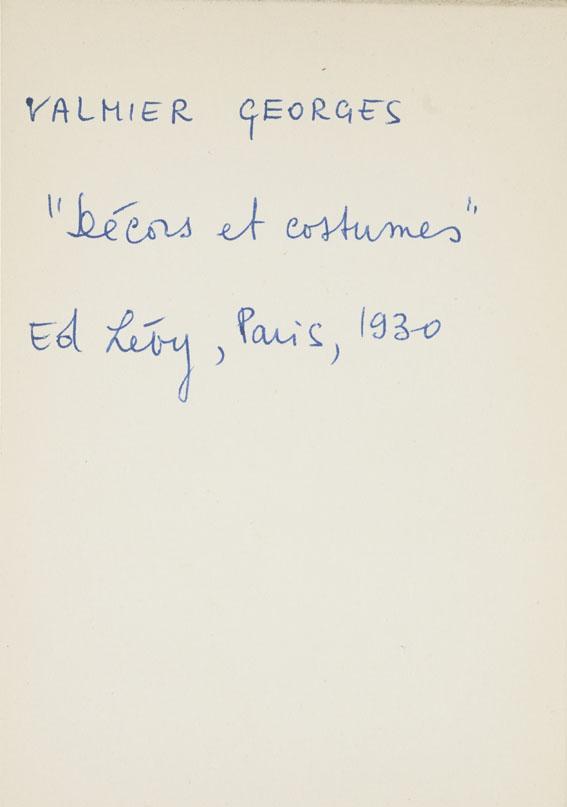 VALMIER GEORGES
"Décors et costumes"
Ed Lévy, Paris, 1930